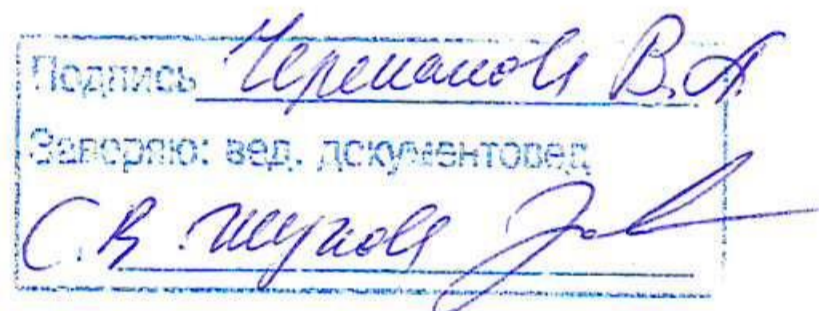 Подпись Черепанова В.А.
Заверяю: вед. документовед
С.В. Жукова